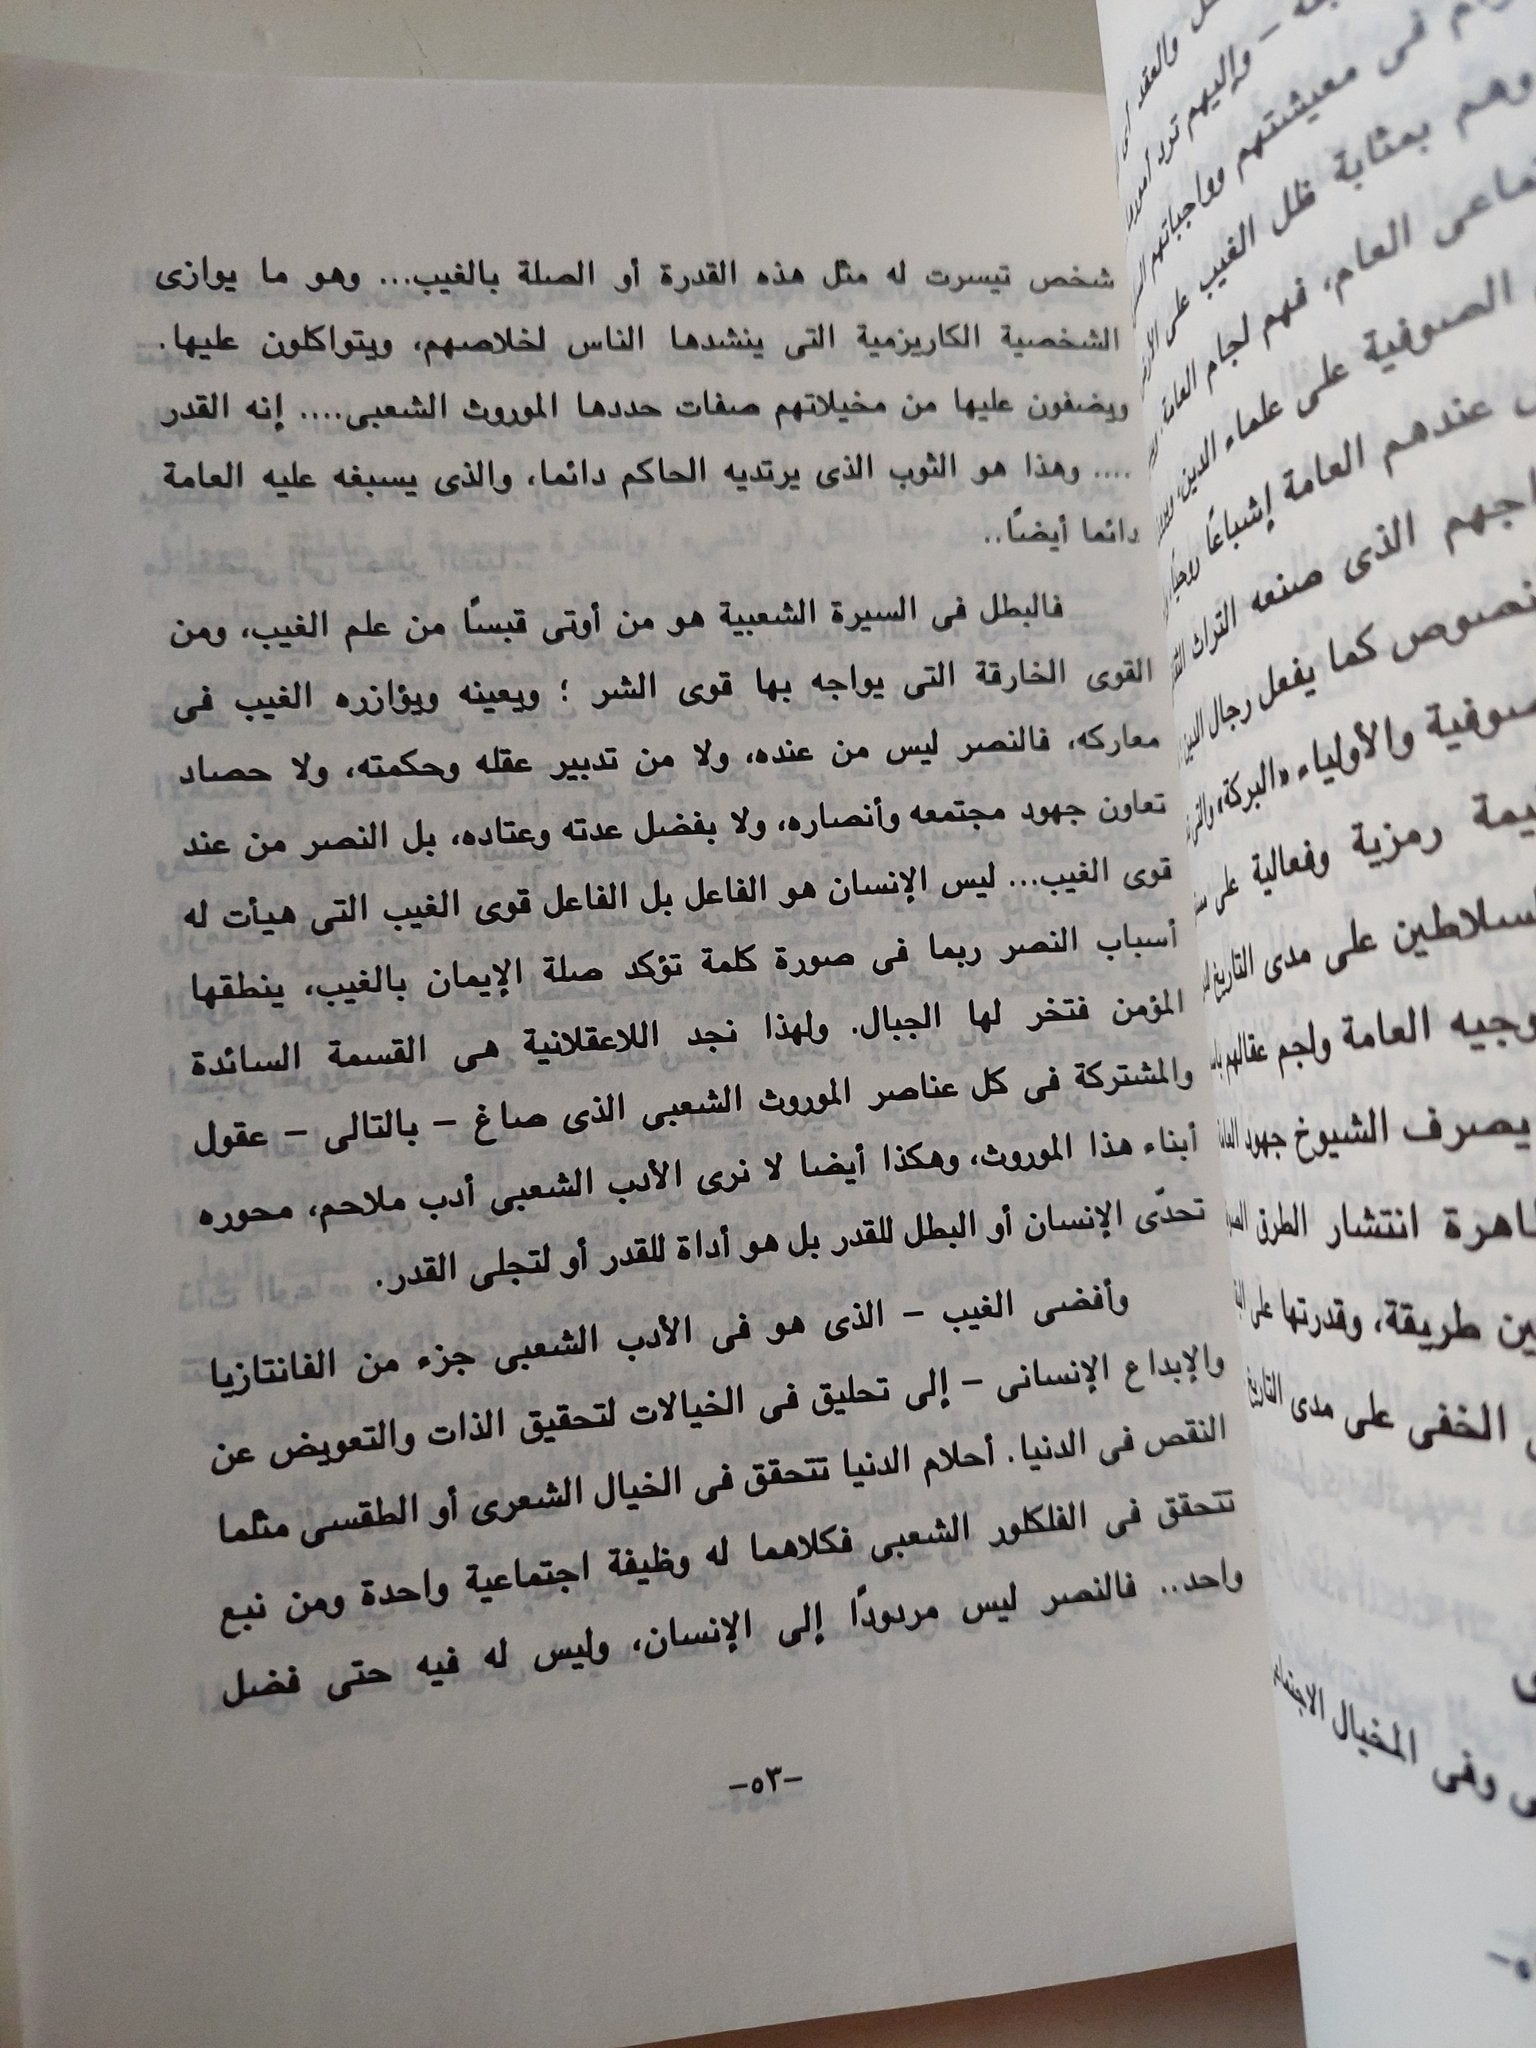 شخص تيسرت له مثل هذه القدرة أو الصلة بالغيب... وهو ما يوازى
الشخصية الكاريزمية التى ينشدها الناس لخلاصهم، ويتواكلون عليها.
ويضفون عليها من مخيلاتهم صفات حددها الموروث الشعبى.... إنه القدر
.... وهذا هو الثوب الذى يرتديه الحاكم دائما، والذى يسبغه عليه العامة
دائما أيضًا..
فالبطل فى السيرة الشعبية هو من أوتى قبسًا من علم الغيب، ومن
القوى الخارقة التى يواجه بها قوى الشر ؛ ويعينه ويؤازره الغيب فى
معاركه، فالنصر ليس من عنده، ولا من تدبير عقله وحكمته، ولا حصاد
تعاون جهود مجتمعه وأنصاره، ولا بفضل عدته وعتاده، بل النصر من عند
قوى الغيب... ليس الإنسان هو الفاعل بل الفاعل قوى الغيب التى هيأت له
أسباب النصر ربما فى صورة كلمة تؤكد صلة الإيمان بالغيب، ينطقها
المؤمن فتخر لها الجبال. ولهذا نجد اللاعقلانية هى القسمة السائدة
والمشتركة فى كل عناصر الموروث الشعبى الذى صاغ – بالتالى – عقول
أبناء هذا الموروث، وهكذا أيضا لا نرى الأدب الشعبى أدب ملاحم، محوره
تحدّى الإنسان أو البطل للقدر بل هو أداة للقدر أو لتجلى القدر.
وأفضى الغيب – الذى هو فى الأدب الشعبى جزء من الفانتازيا
والإبداع الإنسانى – إلى تحليق فى الخيالات لتحقيق الذات والتعويض عن
النقص فى الدنيا. أحلام الدنيا تتحقق فى الخيال الشعرى أو الطقسى مثلما
تتحقق فى الفلكلور الشعبى فكلاهما له وظيفة اجتماعية واحدة ومن نبع
واحد.. فالنصر ليس مردودًا إلى الإنسان، وليس له فيه حتى فضل
–٥٣–
والعقد
– وإليهم ترد
فى معيشتهم وواجباتهم
وهم بمثابة ظل الغيب على
العام، فهم لجام العامة
الصوفية على علماء الدين
عندهم العامة إشباعًا
الذى صنعه التراث
كما يفعل رجال الدين
والأولياء «البركة»
رمزية وفعالية على
على مدى التاريخ
العامة ولجم عقالهم
يصرف الشيوخ جهود
انتشار الطرق
طريقة، وقدرتها على
الخفى على مدى التاريخ
وفى المخيال